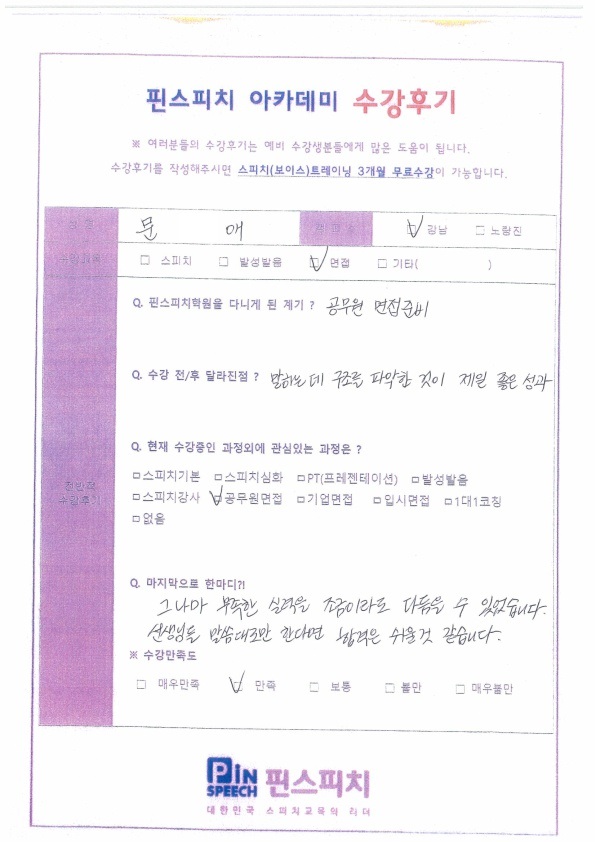 핀스피치 아카데미 수강후기
※ 여러분들의 수강후기는 예비 수강생분들에게 많은 도움이 됩니다.
수강후기를 작성해주시면 스피치(보이스)트레이닝 3개월 무료수강이 가능합니다.
성 명 문 애 캠퍼스 ☑ 강남 □ 노량진
수강과목 □ 스피치 □ 발성발음 ☑ 면접 □ 기타( )
Q. 핀스피치학원을 다니게 된 계기 ? 공무원 면접준비
Q. 수강 전/후 달라진점 ? 말하는데 구조를 파악한 것이 제일 좋은 성과
전반적
수강후기
Q. 현재 수강중인 과정외에 관심있는 과정은 ?
□스피치기본 □스피치심화 □PT(프레젠테이션) □발성발음
□스피치강사 ☑공무원면접 □기업면접 □입시면접 □1대1코칭
□없음
Q. 마지막으로 한마디?!
그나마 부족한 실력을 조금이라도 다듬을 수 있었습니다.
선생님들 말씀대로만 한다면 합격은 쉬울것 같습니다.
※ 수강만족도
□ 매우만족 ☑ 만족 □ 보통 □ 불만 □ 매우불만
PiN SPEECH 핀스피치
대한민국 스피치교육의 리더